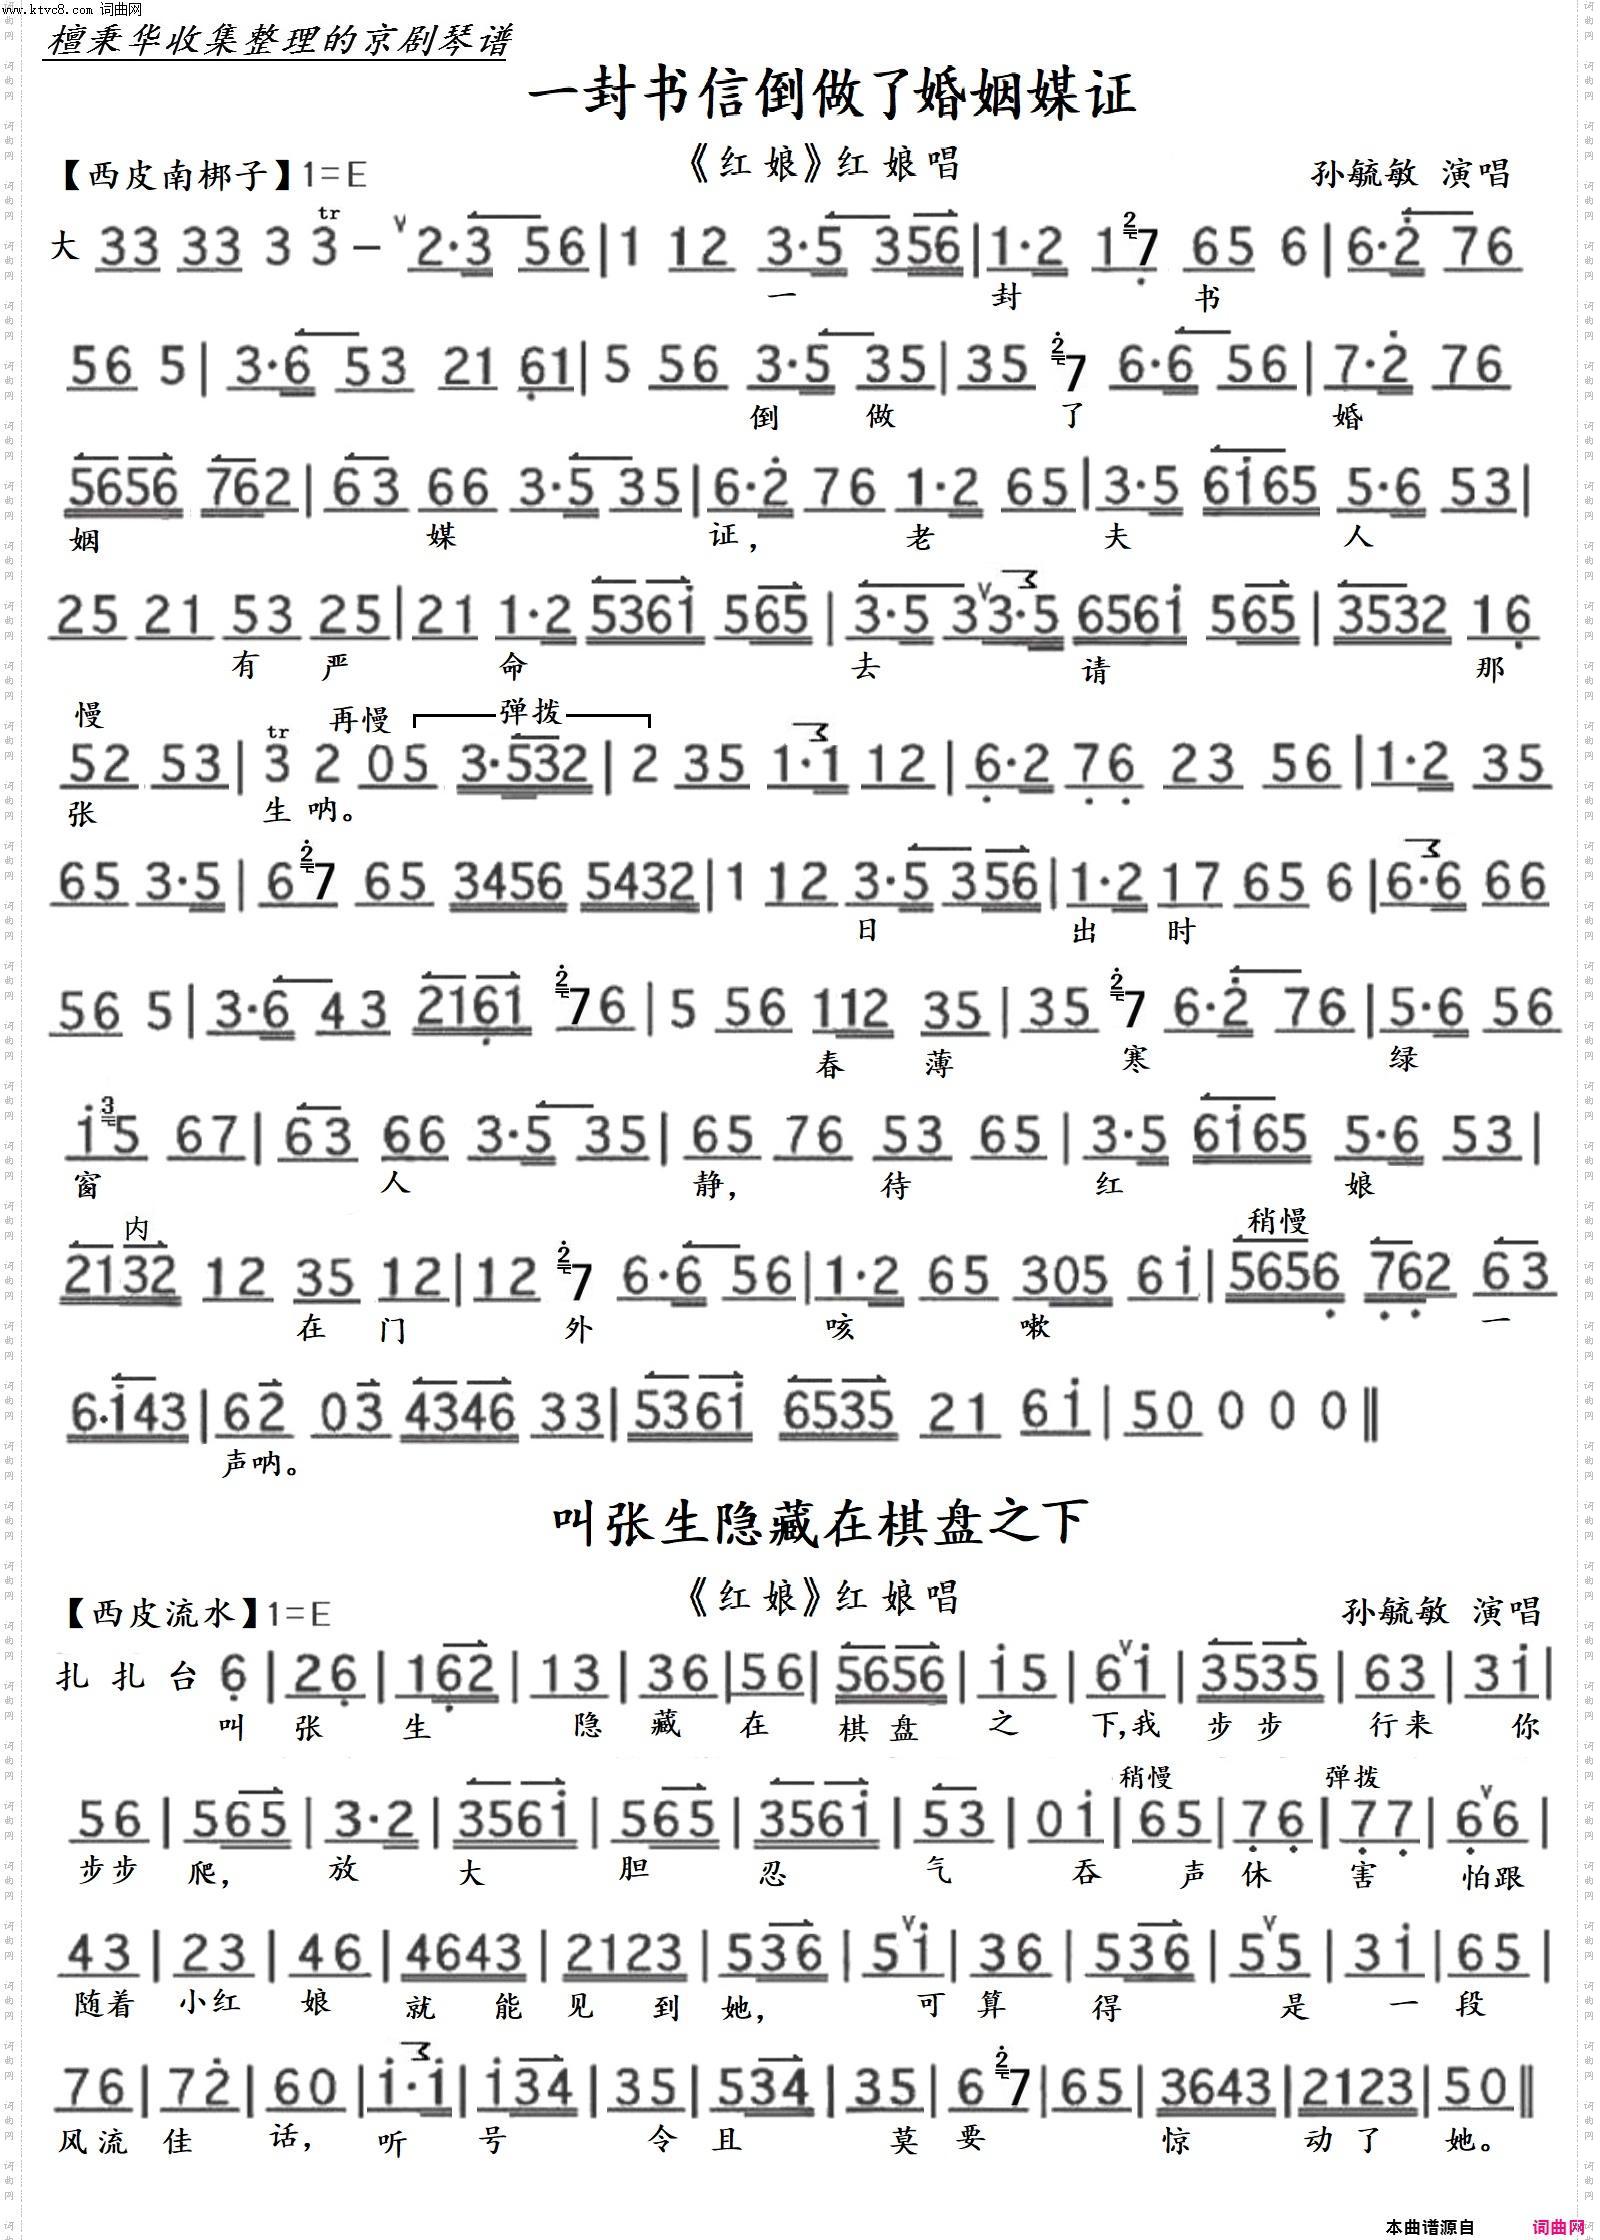 www.ktvc8.com 词曲网
檀秉华收集整理的京剧琴谱
一封书信倒做了婚姻媒证
《红娘》红娘唱
【西皮南梆子】1=E
孙毓敏 演唱
大 33 33 3 3 - 2·3 56 | 1 12 3·5 356 | 1·2 1 2 7 65 6 | 6·2 76
一 封 书
56 5 | 3·6 53 21 61 | 5 56 3·5 35 | 35 2 7 6·6 56 | 7·2 76
倒 做 了 婚
5656 762 | 63 66 3·5 35 | 6·2 76 1·2 65 | 3·5 6165 5·6 53 |
姻 媒 证， 老 夫 人
25 21 53 25 | 21 1·2 5361 565 | 3·5 3 3·5 6561 565 | 3532 16
有 严 命 去 请 那
慢 再慢 弹拨
52 53 | 3 2 05 3·532 | 2 35 1·1 12 | 6·2 76 23 56 | 1·2 35
张 生 呐。
65 3·5 | 6 2 7 65 3456 5432 | 1 12 3·5 356 | 1·2 17 65 6 | 6·6 66
日 出 时
56 5 | 3·6 43 2161 2 76 | 5 56 112 35 | 35 2 7 6·2 76 | 5·6 56
春 薄 寒 绿
1 3 5 67 | 63 66 3·5 35 | 65 76 53 65 | 3·5 6165 5·6 53 |
窗 人 静， 待 红 娘
内 稍慢
2132 12 35 12 | 12 2 7 6·6 56 | 1·2 65 305 61 | 5656 762 63
在 门 外 咳 嗽 一
6·143 | 62 03 4346 33 | 5361 6535 21 61 | 50 0 0 0 ‖
声呐。
叫张生隐藏在棋盘之下
《红娘》红娘唱
【西皮流水】1=E
孙毓敏 演唱
扎 扎 台 6 | 26 | 162 | 13 | 36 | 56 | 5656 | 15 | 61 | 3535 | 63 | 31 |
叫 张 生 隐 藏 在 棋 盘 之 下,我 步 步 行来 你
稍慢 弹拨
56 | 565 | 3·2 | 3561 | 565 | 3561 | 53 | 01 | 65 | 76 | 77 | 66 |
步步 爬， 放 大 胆 忍 气 吞 声 休 害 怕跟
43 | 23 | 46 | 4643 | 2123 | 536 | 51 | 36 | 536 | 55 | 31 | 65 |
随着 小红 娘 就 能 见 到 她， 可 算 得 是 一 段
76 | 72 | 60 | 1·1 | 134 | 35 | 534 | 35 | 6 2 7 | 65 | 3643 | 2123 | 50 ‖
风流 佳 话， 听 号 令 且 莫 要 惊 动 了 她。
本曲谱源自 词曲网